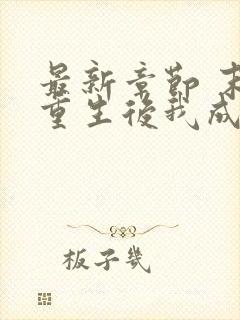 最新章節 末
重生後我成
板子幾